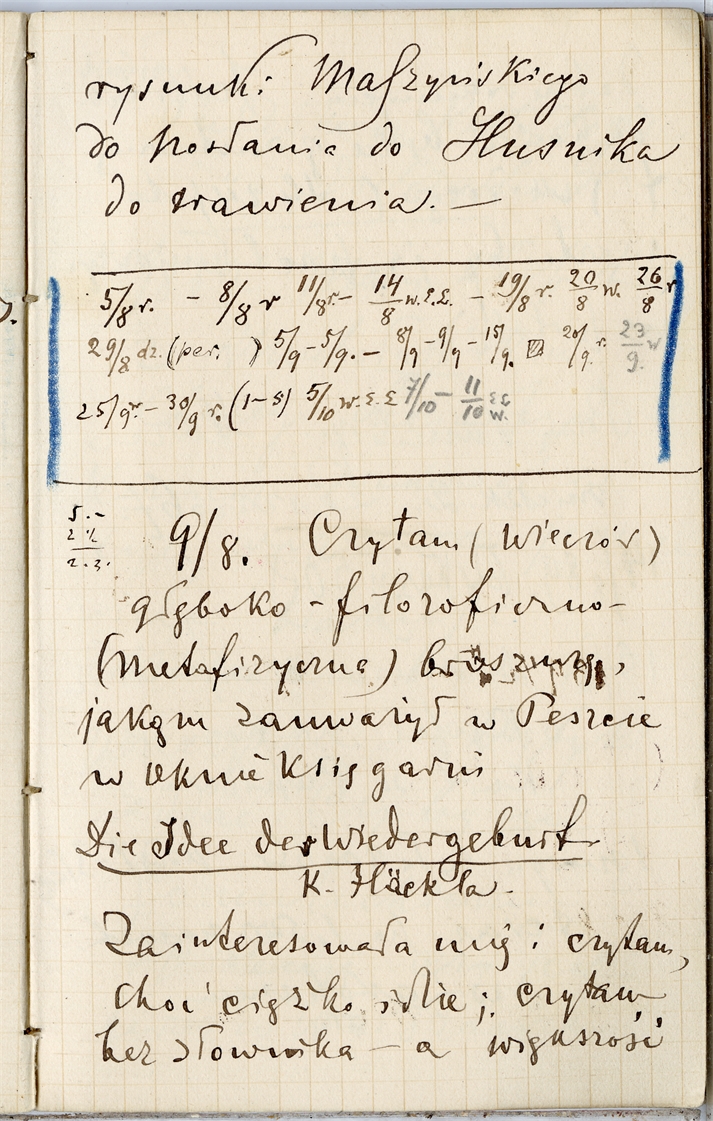 rysunki Maszyńskiego
do posłania do Husnika
do trawienia. —
5/8 r. - 8/8 r 11/8 r. - 14/8 w. Σ.Σ. - 19/8 r. 20/8 w. 26/8 r
29/8 dz. (per. ) 5/9 - 5/9. - 8/9 - 9/9 - 15/9. 20/9 r. 23/9. w
25/9 r. - 30/9 r. (1-5) 5/10 w. Σ.Σ 7/10 - 11/10 ΣΣ w.
5.-
2.3.
9/8. Czytam (wieczór)
głęboko - filozoficzno-
(metafizyczną) broszurę,
jakąm zauważył w Peszcie
w oknie księgarni
Die Idee der Wiedergeburt
K. Häckla.
Zainteresowała mię i czytam,
choć ciężko idzie; czytam
bez słownika - a większość